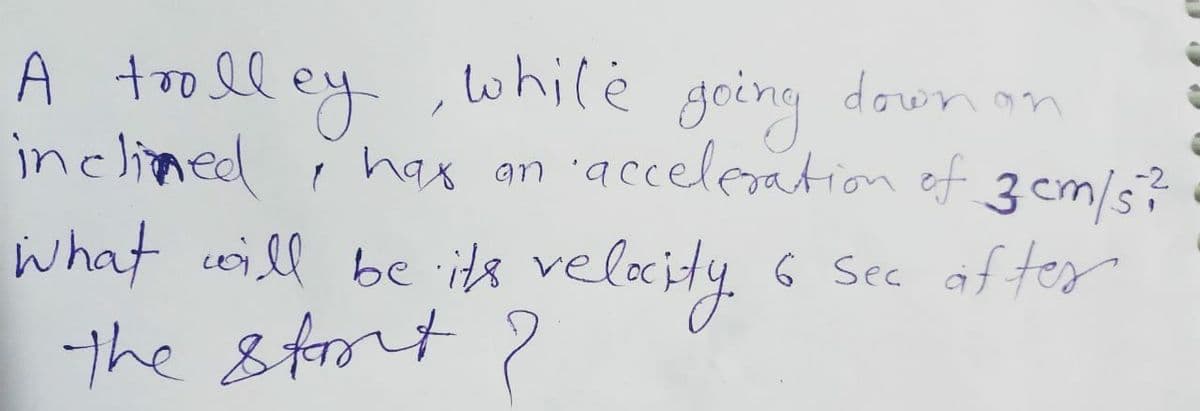 A trolley, while going down an
inclined, has an acceleration of 3 cm/s⁻²?
What will be its velocity 6 Sec after
the start ?